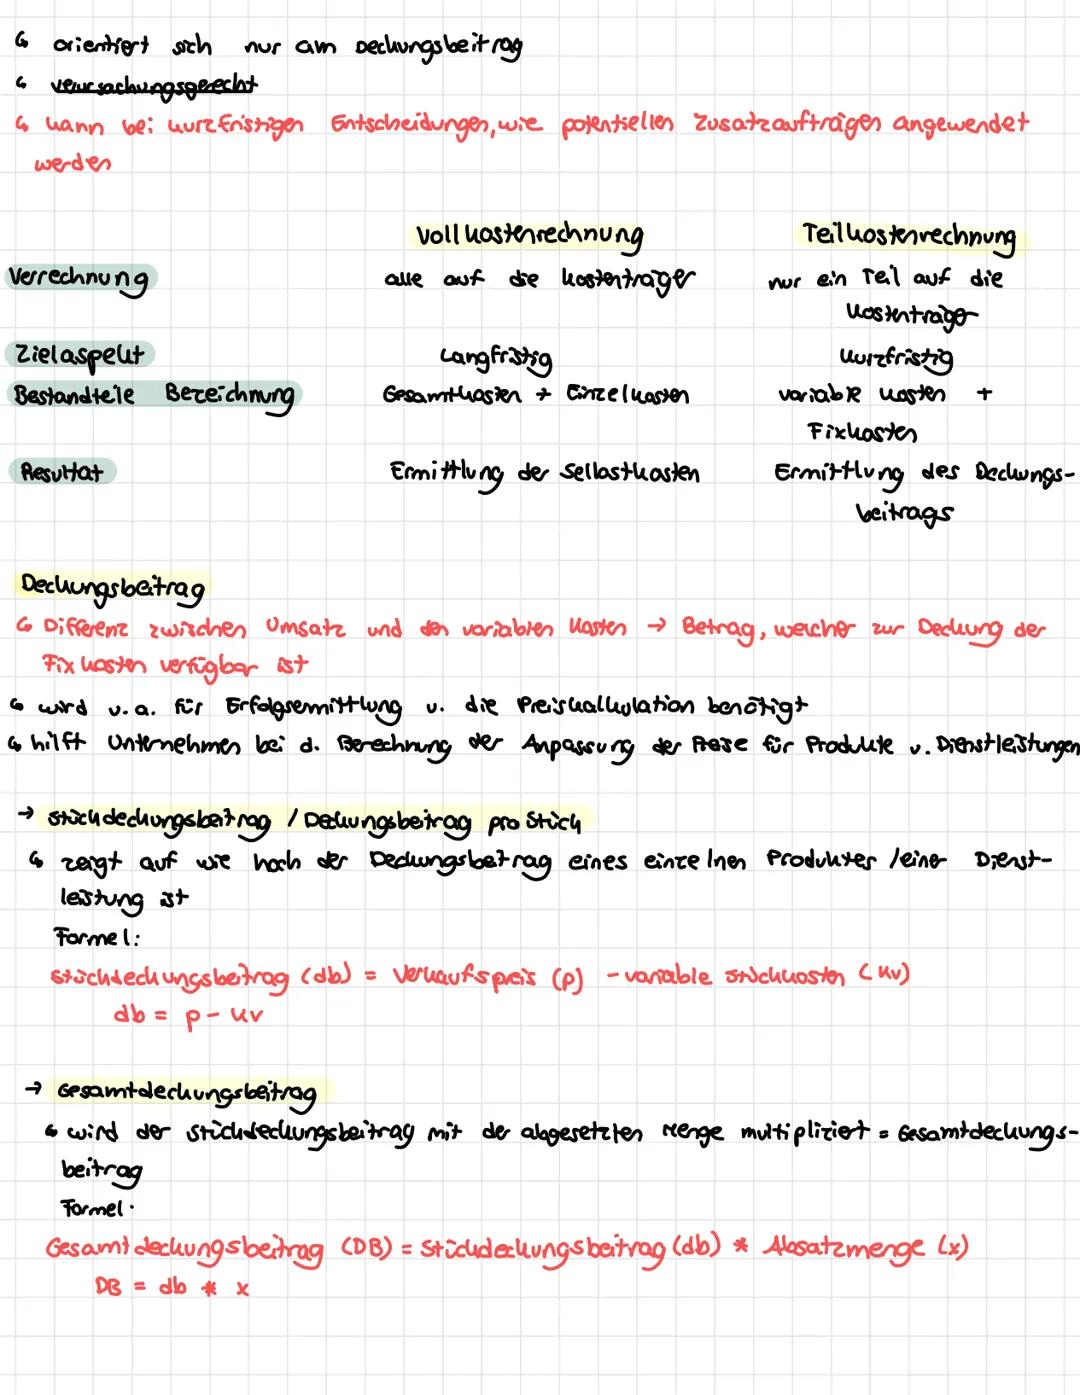 ↳ orientiert sich nur am Deckungsbeitrag
↳ verursachungsgerecht
↳ kann bei kurzfristigen Entscheidungen, wie potentiellen Zusatzaufträgen angewendet
werden
Vollkostenrechnung Teilkostenrechnung
Verrechnung alle auf die Kostenträger nur ein Teil auf die
Kostenträger
Zielaspekt Langfristig kurzfristig
Bestandteile Bezeichnung Gesamtkosten + Einzelkosten variable Kosten +
Fixkosten
Resultat Ermittlung der Selbstkosten Ermittlung des Deckungs-
beitrags
Deckungsbeitrag
↳ Differenz zwischen Umsatz und den variablen Kosten → Betrag, welcher zur Deckung der
Fixkosten verfügbar ist
↳ wird v.a. für Erfolgsermittlung u. die Preiskalkulation benötigt
↳ hilft Unternehmen bei d. Berechnung der Anpassung der Preise für Produkte u. Dienstleistungen
→ Stückdeckungsbeitrag / Deckungsbeitrag pro Stück
↳ zeigt auf wie hoch der Deckungsbeitrag eines einzelnen Produktes / einer Dienst-
leistung ist
Formel:
Stückdeckungsbeitrag (db) = Verkaufspreis (p) - variable Stückkosten (kv)
db = p - kv
→ Gesamtdeckungsbeitrag
↳ wird der Stückdeckungsbeitrag mit der abgesetzten Menge multipliziert = Gesamtdeckungs-
beitrag
Formel:
Gesamtdeckungsbeitrag (DB) = Stückdeckungsbeitrag (db) * Absatzmenge (x)
DB = db * x